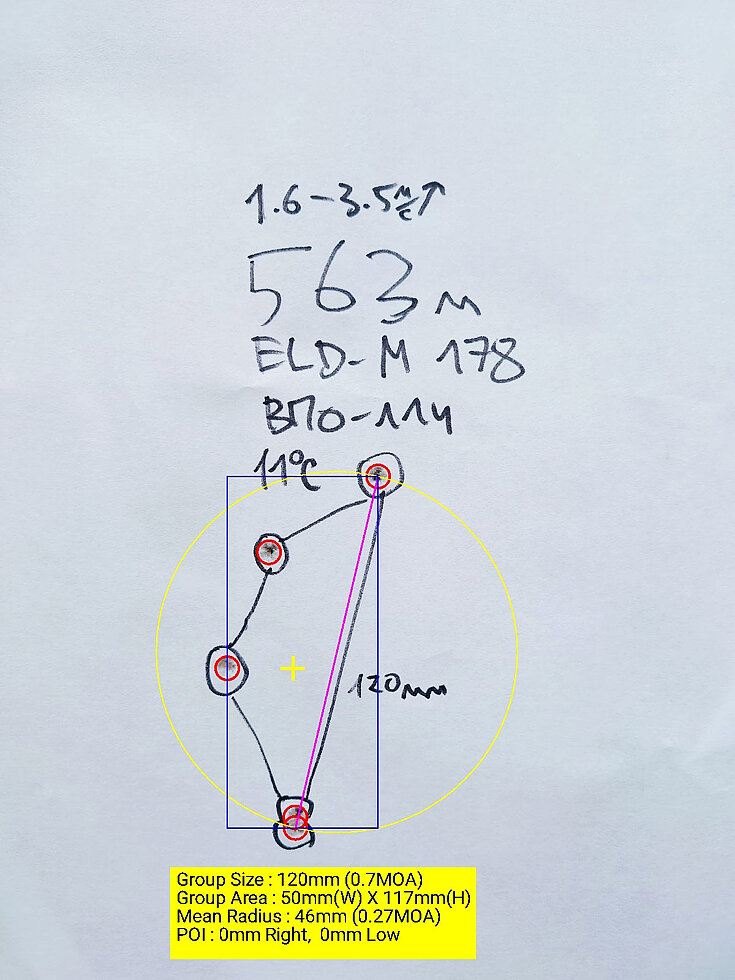 1.6-3.5 м/с↑
563 м
ELD-M 178
ВПО-114
11°C
120мм
Group Size : 120mm (0.7MOA)
Group Area : 50mm(W) X 117mm(H)
Mean Radius : 46mm (0.27MOA)
POI : 0mm Right,  0mm Low